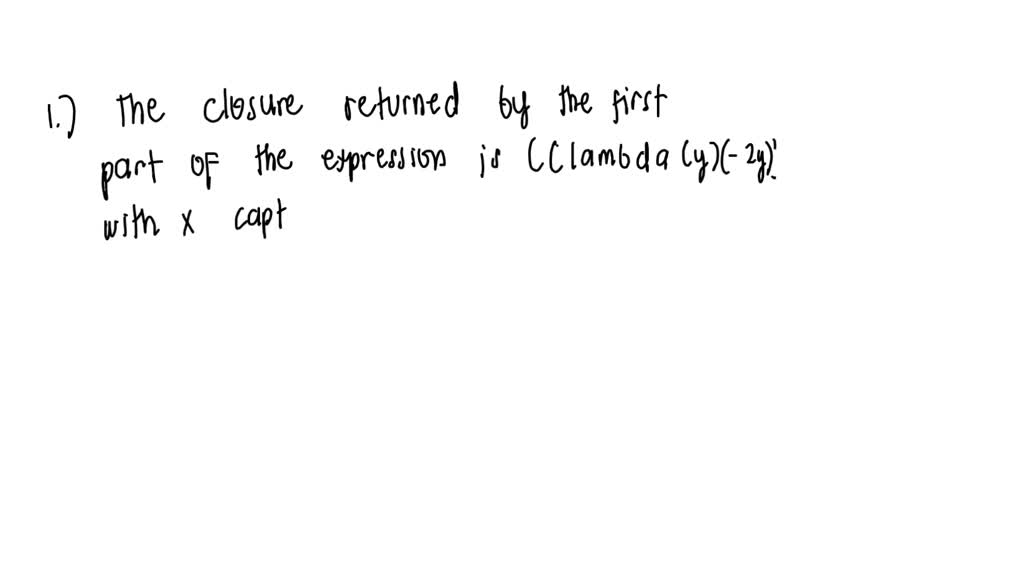 1.) The closure returned by the first
part of the expression is ((lambda (y)(- 2y)
with x capt